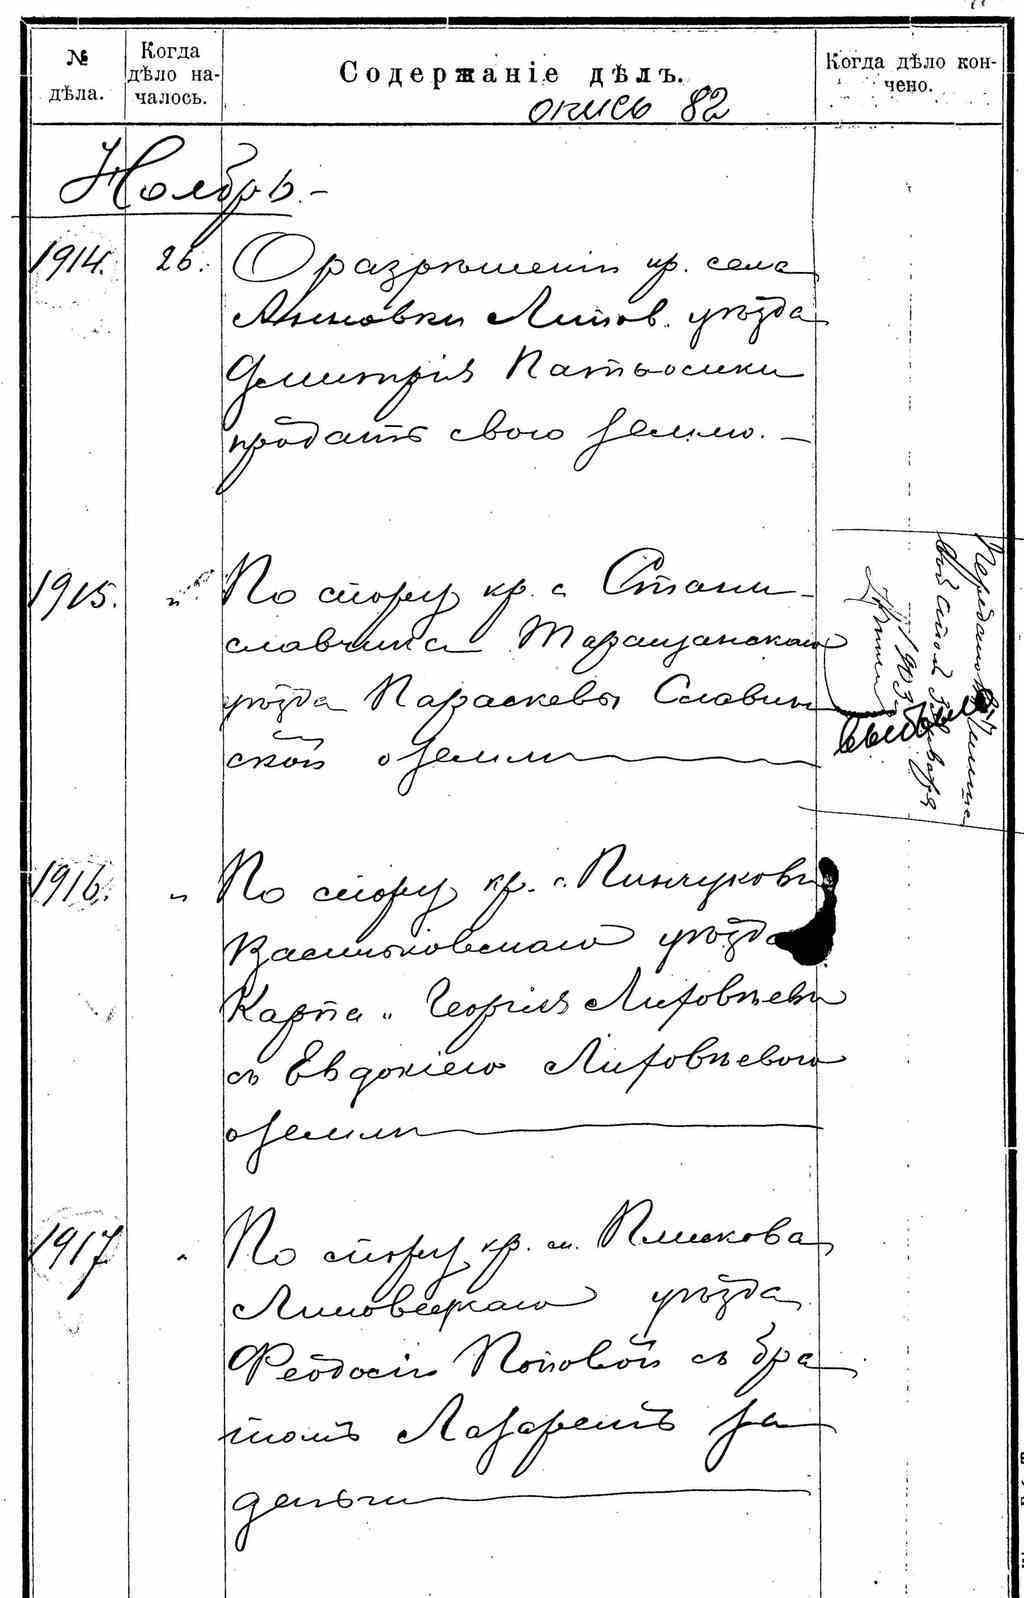 № дѣла.
Когда дѣло на-
чалось.
Содержаніе дѣлъ.
Когда дѣло кон-
чено.
опись 82
Ноябрь.-
1914. 26. О разрѣшеніи кр. села
Анновки Липов. уѣзда
Димитрія
продать свою землю. —
1915. " По спору кр. с. Стани-
славчика Таращанскаго
уѣзда Параскевы Славин
ской о землѣ
выбыло
1916. " По спору кр. с. Пинчуковъ
Васильковскаго уѣзда
Карпа и Георгія
съ Евдокіею
о землѣ
1917 " По спору кр. м. Плискова
Липовецкаго уѣзда
Феодосіи Поповой съ бра
томъ Лазаремъ за
деньги